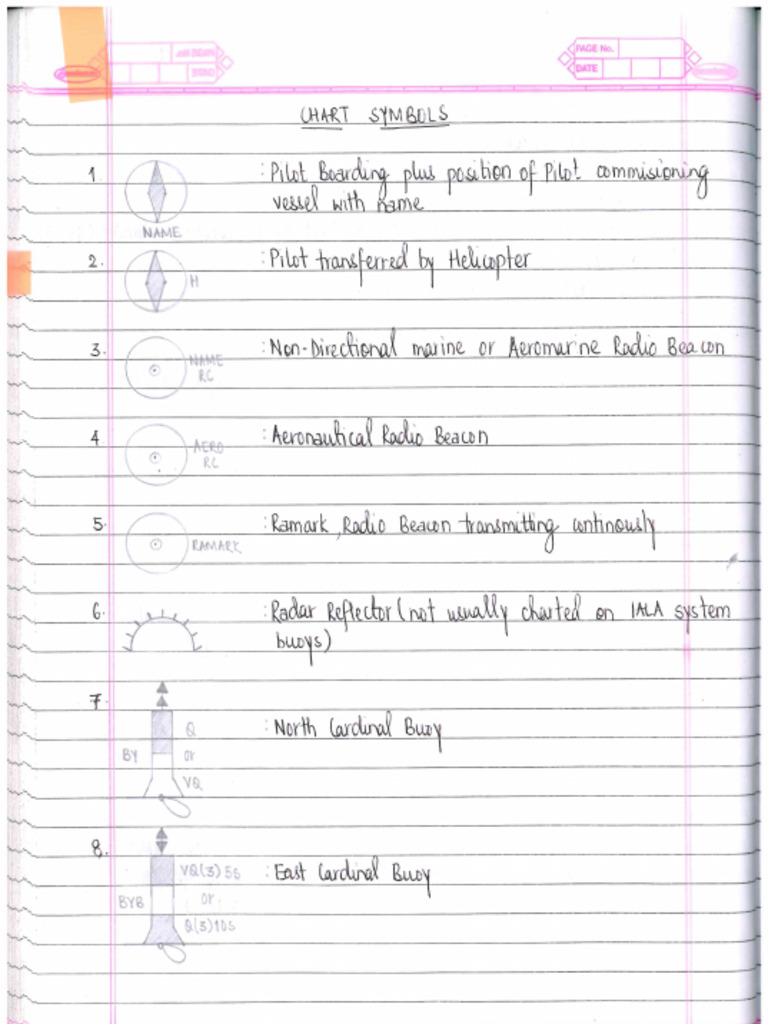 PAGE No.
DATE
CHART SYMBOLS
1. : Pilot Boarding plus position of Pilot commisioning
vessel with name
NAME
2. H : Pilot transferred by Helicopter
3. NAME : Non-Directional marine or Aeromarine Radio Beacon
RC
4. AERO : Aeronautical Radio Beacon
RC
5. RAMARK : Ramark, Radio Beacon transmitting continously
6. : Radar Reflector (not usually charted on IALA system
buoys)
7. Q : North Cardinal Buoy
BY or
VQ
8. VQ(3)5s : East Cardinal Buoy
BYB or
Q(3)10s